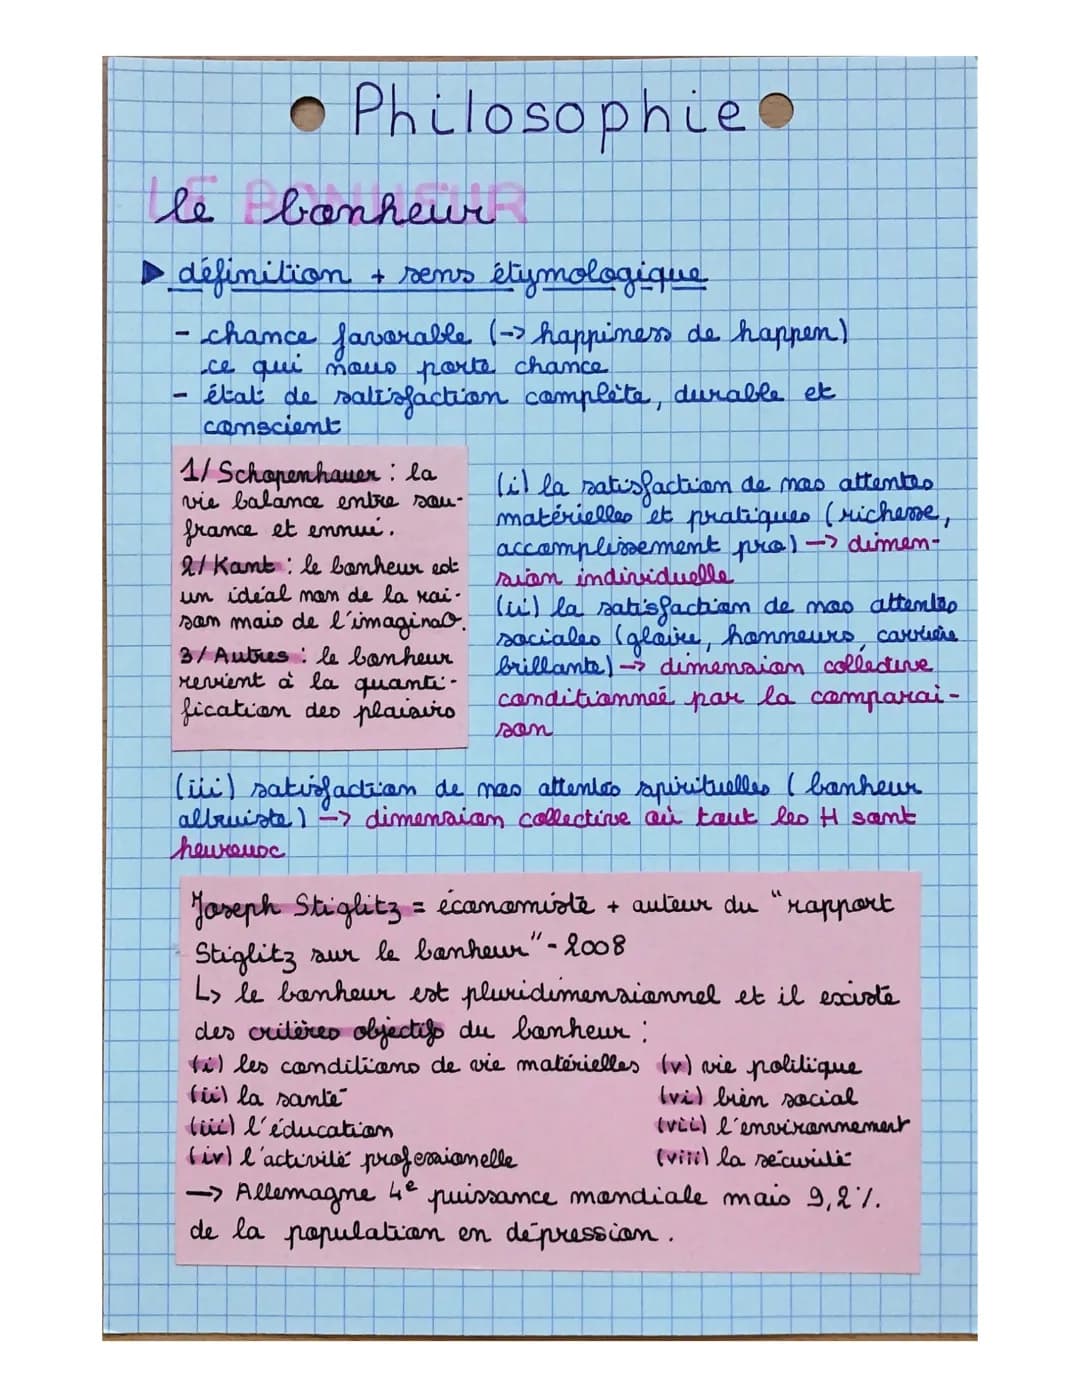 Philosophie
LE BONHEUR
le bonheur
définition + sens étymologique
- chance favorable (-> happiness de happen)
ce qui nous porte chance
- état de satisfaction complète, durable et
conscient
1/ Schopenhauer : la
vie balance entre sou-
france et ennui.
2/ Kant : le bonheur est
un idéal non de la rai-
son mais de l'imagina°.
3/ Autres : le bonheur
revient à la quanti-
fication des plaisirs
(i) la satisfaction de nos attentes
matérielles et pratiques (richesse,
accomplissement pro) -> dimen-
sion individuelle
(ii) la satisfaction de nos attentes
sociales (gloire, honneurs, carrière
brillante) -> dimension collective
conditionneé par la comparai-
son
(iii) satisfaction de nos attentes spirituelles (bonheur
altruiste) -> dimension collective où tout les H sont
heureux
Joseph Stiglitz = économiste + auteur du "rapport
Stiglitz sur le bonheur" - 2008
↳ le bonheur est pluridimensionnel et il existe
des critères objectifs du bonheur :
(i) les conditions de vie matérielles (v) vie politique
(ii) la santé (vi) bien social
(iii) l'éducation (vii) l'environnement
(iv) l'activité professionelle (viii) la sécurité
-> Allemagne 4e puissance mondiale mais 9,2%.
de la population en dépression.